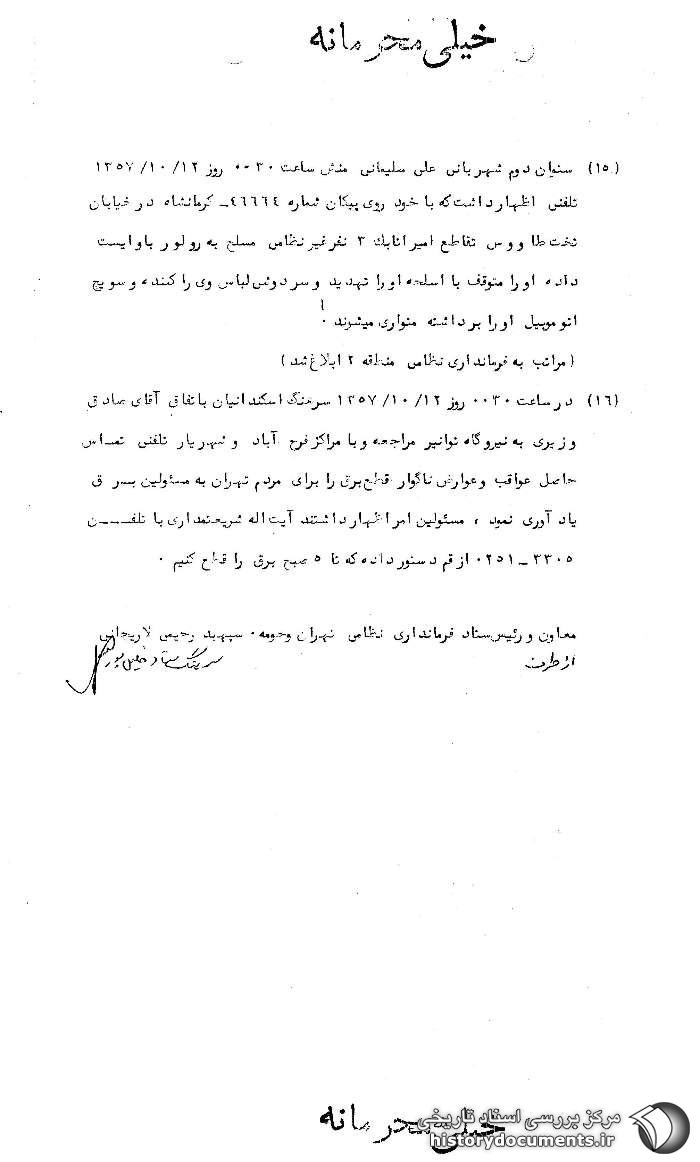 خیلی محرمانه
(۱۵) ستوان دوم شهربانی علی سلیمانی منش ساعت ۰۰۳۰ روز ۱۳۵۷/۱۰/۱۲
تلفنی اظهار داشت که با خودروی پیکان شماره ۴۶۶۶۴ـ کرمانشاه در خیابان
تخت طاووس تقاطع امیر اتابک ۳ نفر غیرنظامی مسلح به رولور باو ایست
داده او را متوقف با اسلحه او را تهدید و سردوشی لباس وی را کنده و سویچ
اتوموبیل او را برداشته متواری میشوند .
(مراتب به فرمانداری نظامی منطقه ۲ ابلاغ شد)
(۱۶) در ساعت ۰۰۳۰ روز ۱۳۵۷/۱۰/۱۲ سرهنگ اسکندانیان باتفاق آقای صادق
وزیری به نیروگاه توانیر مراجعه و با مراکز فرح آباد و شهریار تلفنی تماس
حاصل عواقب و عوارض ناگوار قطع برق را برای مردم تهران به مسئولین برق
یادآوری نمود ، مسئولین امر اظهار داشتند آیت اله شریعتمداری با تلفــــن
۳۳۰۵ ـ ۰۲۵۱ از قم دستور داده که تا ۵ صبح برق را قطع کنیم .
معاون و رئیس ستاد فرمانداری نظامی تهران و حومه . سپهبد رحیمی لاریجانی
از طرف سرهنگ ستاد
خیلی محرمانه
مرکز بررسی اسناد تاریخی
historydocuments.ir